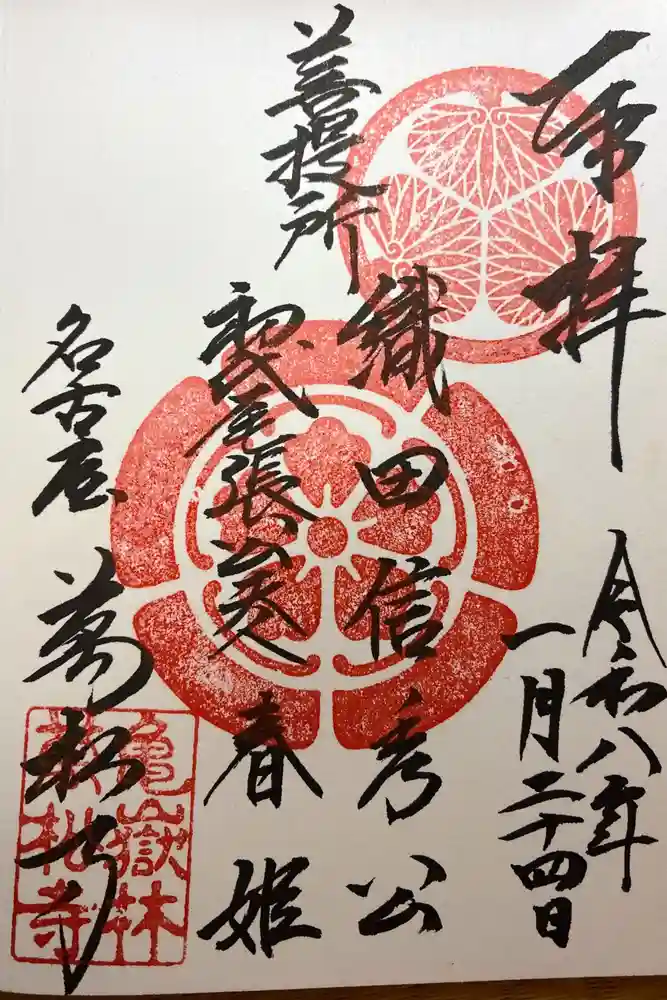 奉拝
令和八年
一月二十四日
菩提所
織田信秀公
初代尾張藩主夫人
春姫
名古屋
萬松寺
亀嶽林
萬松寺